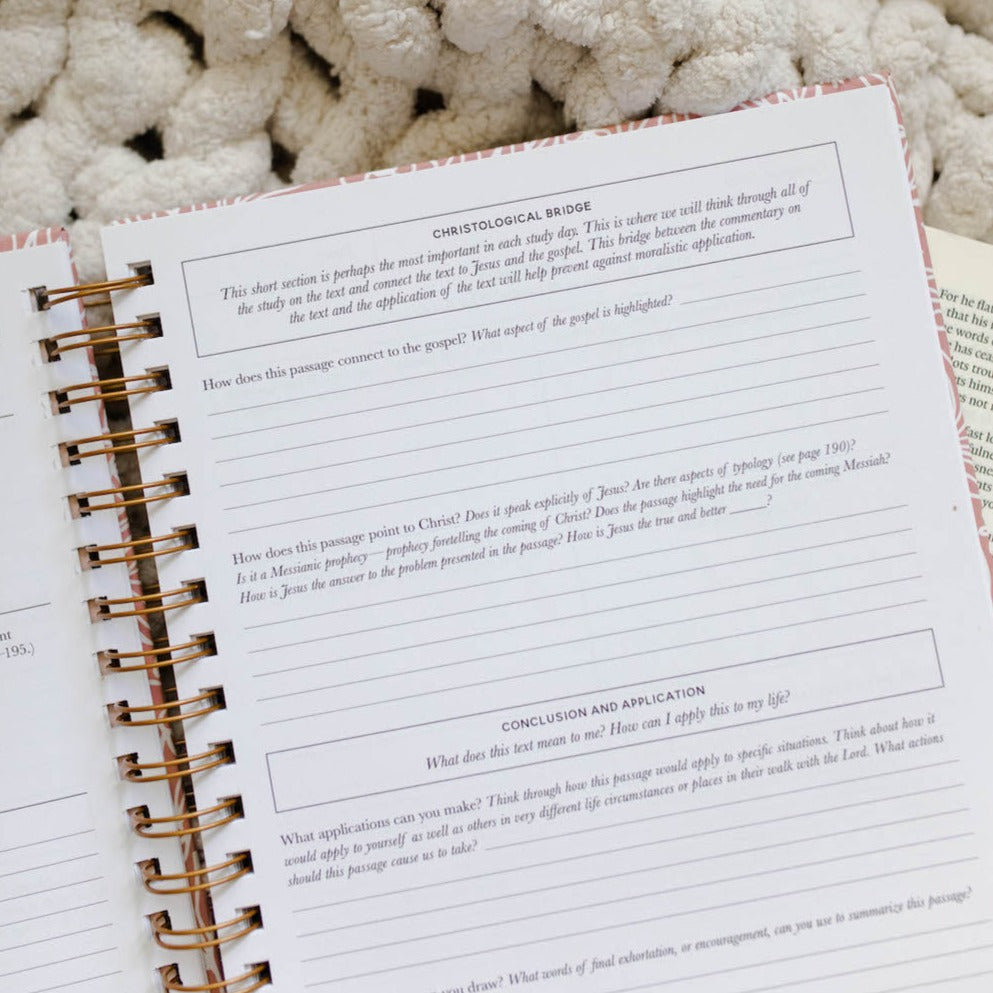 CHRISTOLOGICAL BRIDGE
This short section is perhaps the most important in each study day. This is where we will think through all of
the study on the text and connect the text to Jesus and the gospel. This bridge between the commentary on
the text and the application of the text will help prevent against moralistic application.
How does this passage connect to the gospel? What aspect of the gospel is highlighted?
How does this passage point to Christ? Does it speak explicitly of Jesus? Are there aspects of typology (see page 190)?
Is it a Messianic prophecy—prophecy foretelling the coming of Christ? Does the passage highlight the need for the coming Messiah?
How is Jesus the answer to the problem presented in the passage? How is Jesus the true and better ______?
CONCLUSION AND APPLICATION
What does this text mean to me? How can I apply this to my life?
What applications can you make? Think through how this passage would apply to specific situations. Think about how it
would apply to yourself as well as others in very different life circumstances or places in their walk with the Lord. What actions
should this passage cause us to take?
you draw? What words of final exhortation, or encouragement, can you use to summarize this passage?
nt
-195.)
For he flat
that his
words
has cea
trou
his
not